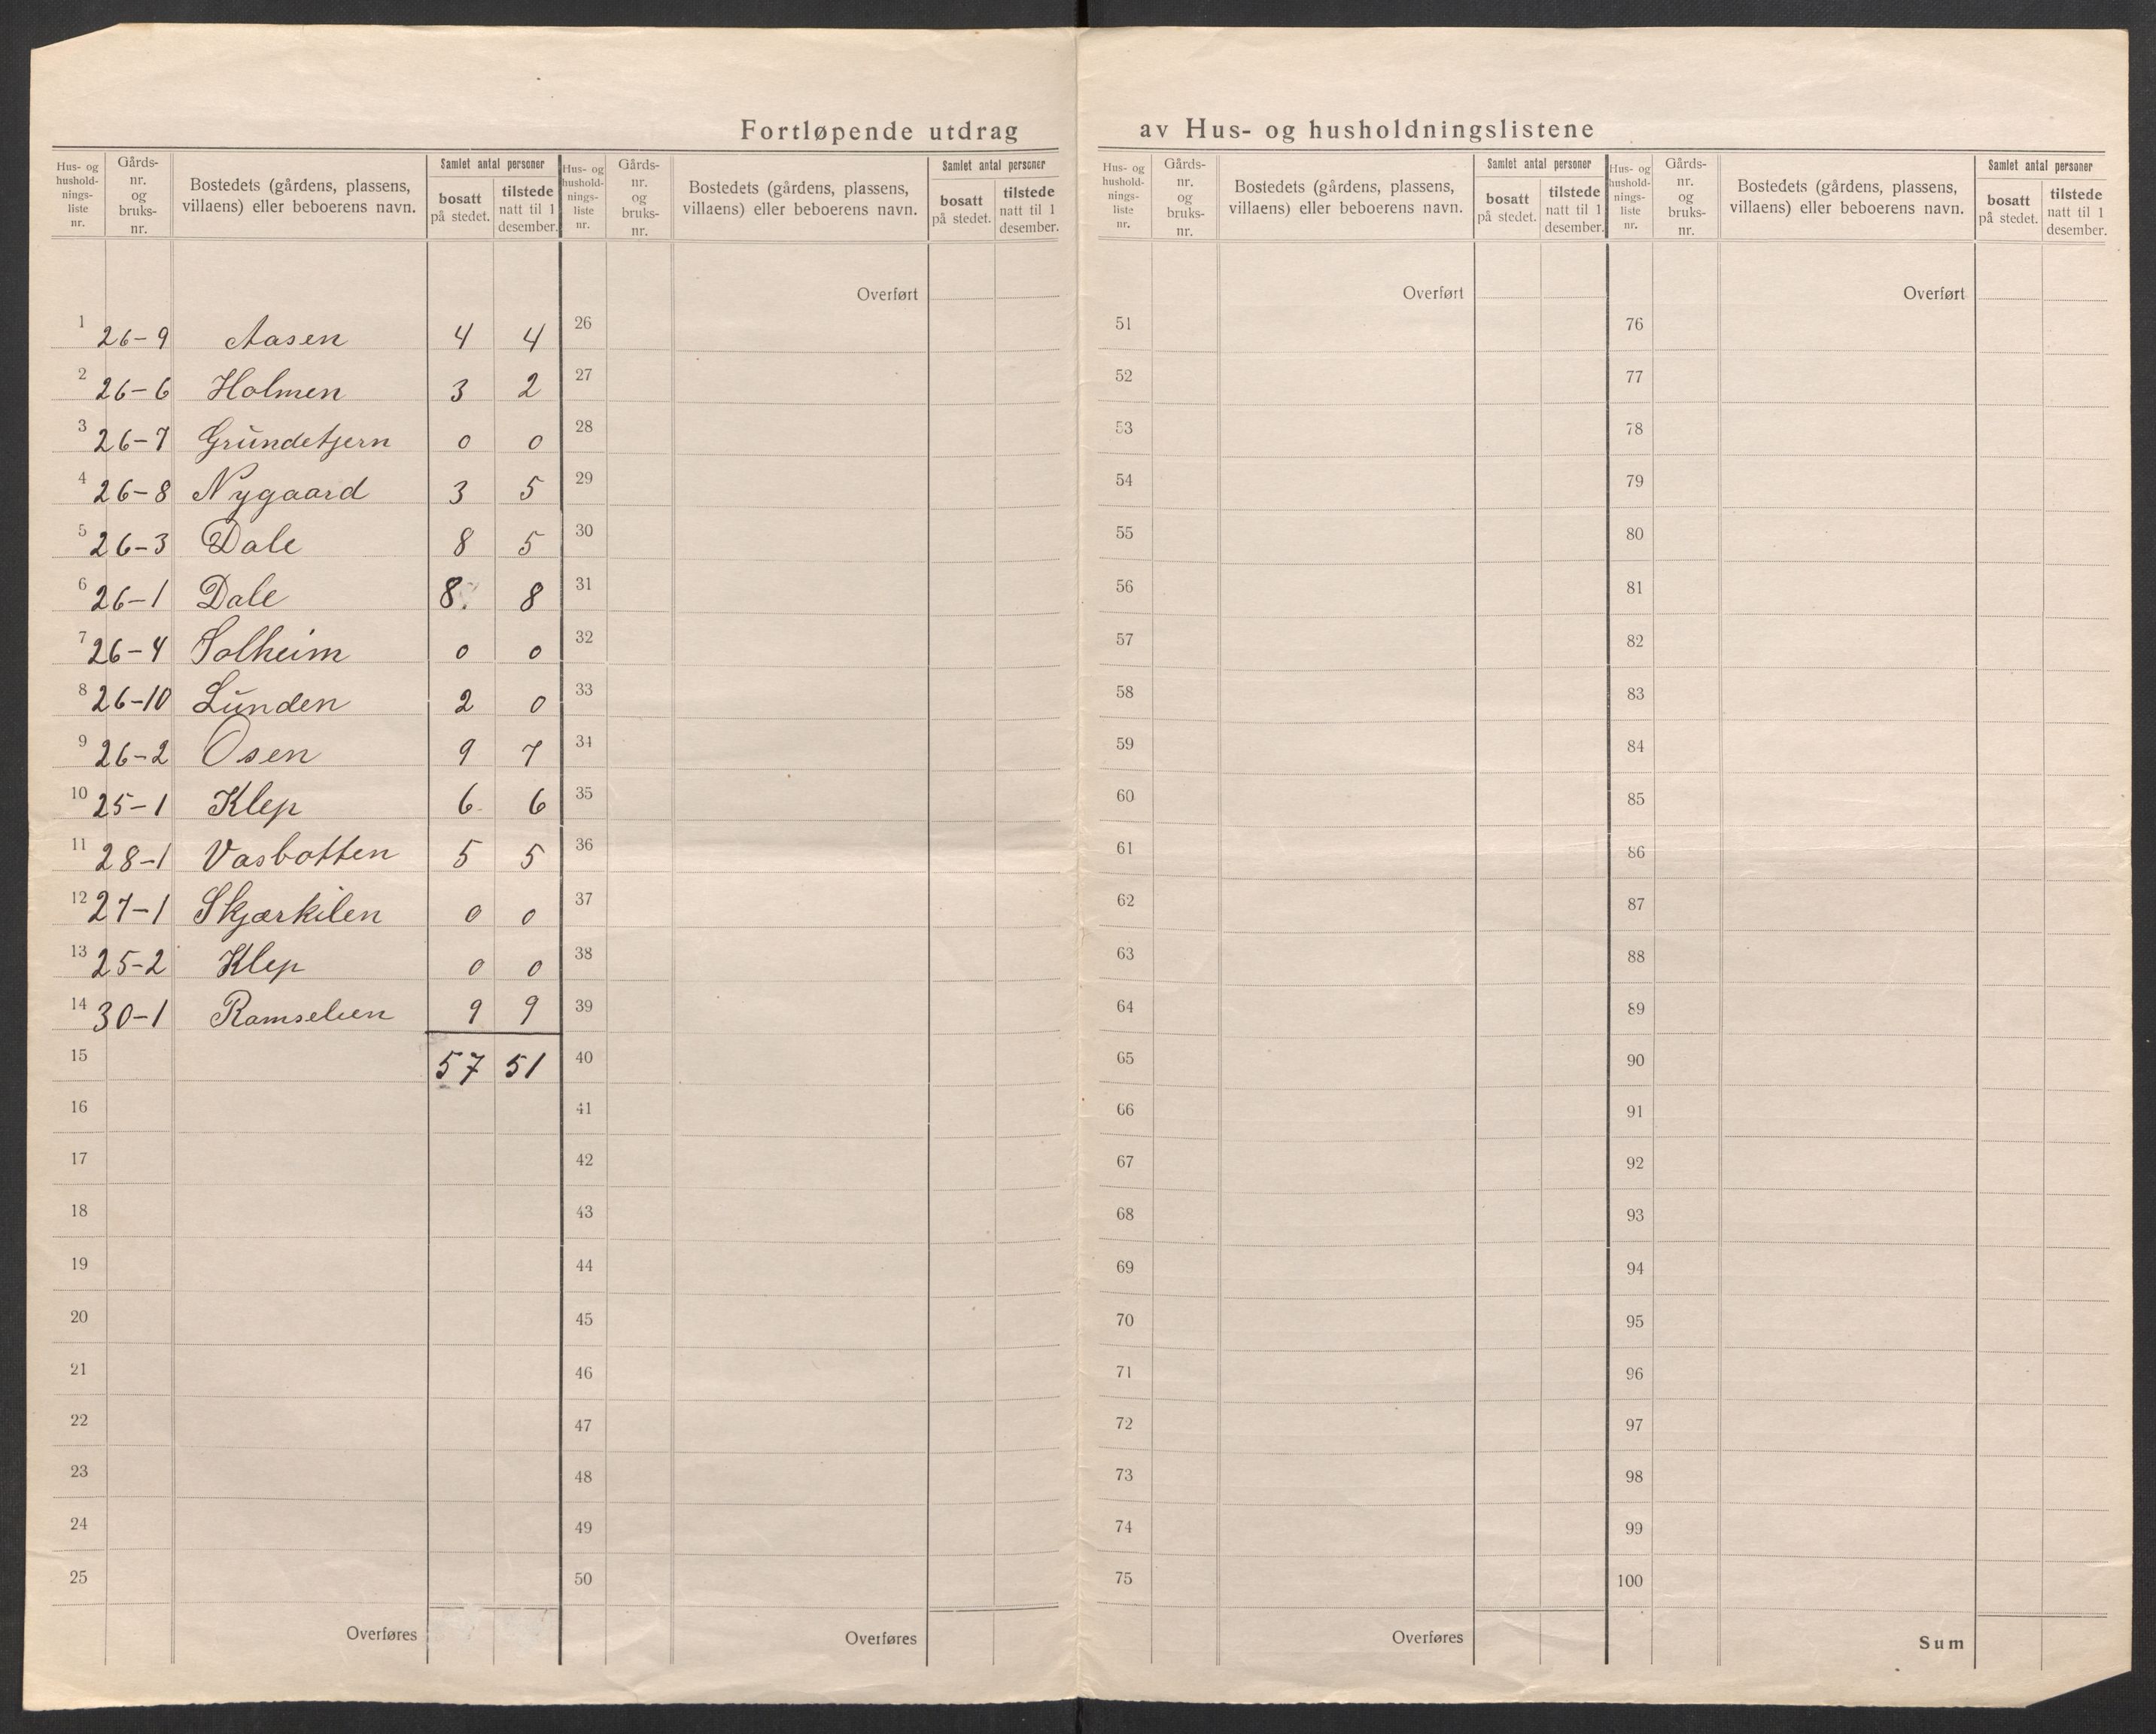 Fortløpende utdrag av Hus- og husholdningslistene
Hus- og hushold-nings-liste nr. Gårds-nr. og bruks-nr. Bostedets (gårdens, plassens, villaens) eller beboerens navn. Samlet antal personer bosatt på stedet. tilstede natt til 1 desember.
Hus- og hushold-nings-liste nr. Gårds-nr. og bruks-nr. Bostedets (gårdens, plassens, villaens) eller beboerens navn. Samlet antal personer bosatt på stedet. tilstede natt til 1 desember.
Hus- og hushold-nings-liste nr. Gårds-nr. og bruks-nr. Bostedets (gårdens, plassens, villaens) eller beboerens navn. Samlet antal personer bosatt på stedet. tilstede natt til 1 desember.
Hus- og hushold-nings-liste nr. Gårds-nr. og bruks-nr. Bostedets (gårdens, plassens, villaens) eller beboerens navn. Samlet antal personer bosatt på stedet. tilstede natt til 1 desember.
Overført Overført Overført
1 26-9 Aasen 4 4 26 51 76
2 26-6 Holmen 3 2 27 52 77
3 26-7 Grundetjern 0 0 28 53 78
4 26-8 Nygaard 3 5 29 54 79
5 26-3 Dale 8 5 30 55 80
6 26-1 Dale 8. 8 31 56 81
7 26-4 Solheim 0 0 32 57 82
8 26-10 Lunden 2 0 33 58 83
9 26-2 Osen 9 7 34 59 84
10 25-1 Klep 6 6 35 60 85
11 28-1 Vasbotten 5 5 36 61 86
12 27-1 Skjærkilen 0 0 37 62 87
13 25-2 Klep 0 0 38 63 88
14 30-1 Ramselien 9 9 39 64 89
15 57 51 40 65 90
16 41 66 91
17 42 67 92
18 43 68 93
19 44 69 94
20 45 70 95
21 46 71 96
22 47 72 97
23 48 73 98
24 49 74 99
25 50 75 100
Overføres Overføres Overføres Sum